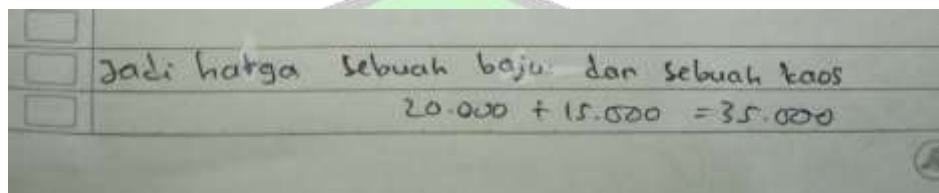 Jadi harga sebuah baju dan sebuah kaos
20.000 + 15.000 = 35.000